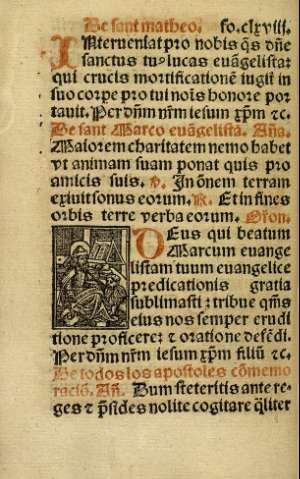 De sant matheo. fo.clxviii.
INterueniat pro nobis q̃s dñe
sanctus tuꝰ lucas euãgelista:
qui crucis mortificationẽ iugit̃ in
suo corpe pro tui nois̃ honore por
tauit. Per dñm nr̃m iesum xp̃m ⁊c.
De sant Marco euãgelista. Aña.
Maiorem charitatem nemo habet
vt animam suam ponat quis pro
amicis suis. v. In oñem terram
exiuit sonus eorum. R. Et in fines
orbis terre verba eorum. Orom̃.
DEus qui beatum
Marcum euange
listam tuum euangelice
predicationis gratia
sublimasti: tribue q̃ms
eius nos semper erudi
tione proficere: ⁊ oratione defẽdi.
Per dñm nr̃m iesum xp̃m filiũ ⁊c.
De todos los apostoles cõmemo
raciõ. Añ. Dum steteritis ante re-
ges ⁊ p̃sides nolite cogitare q̃liter